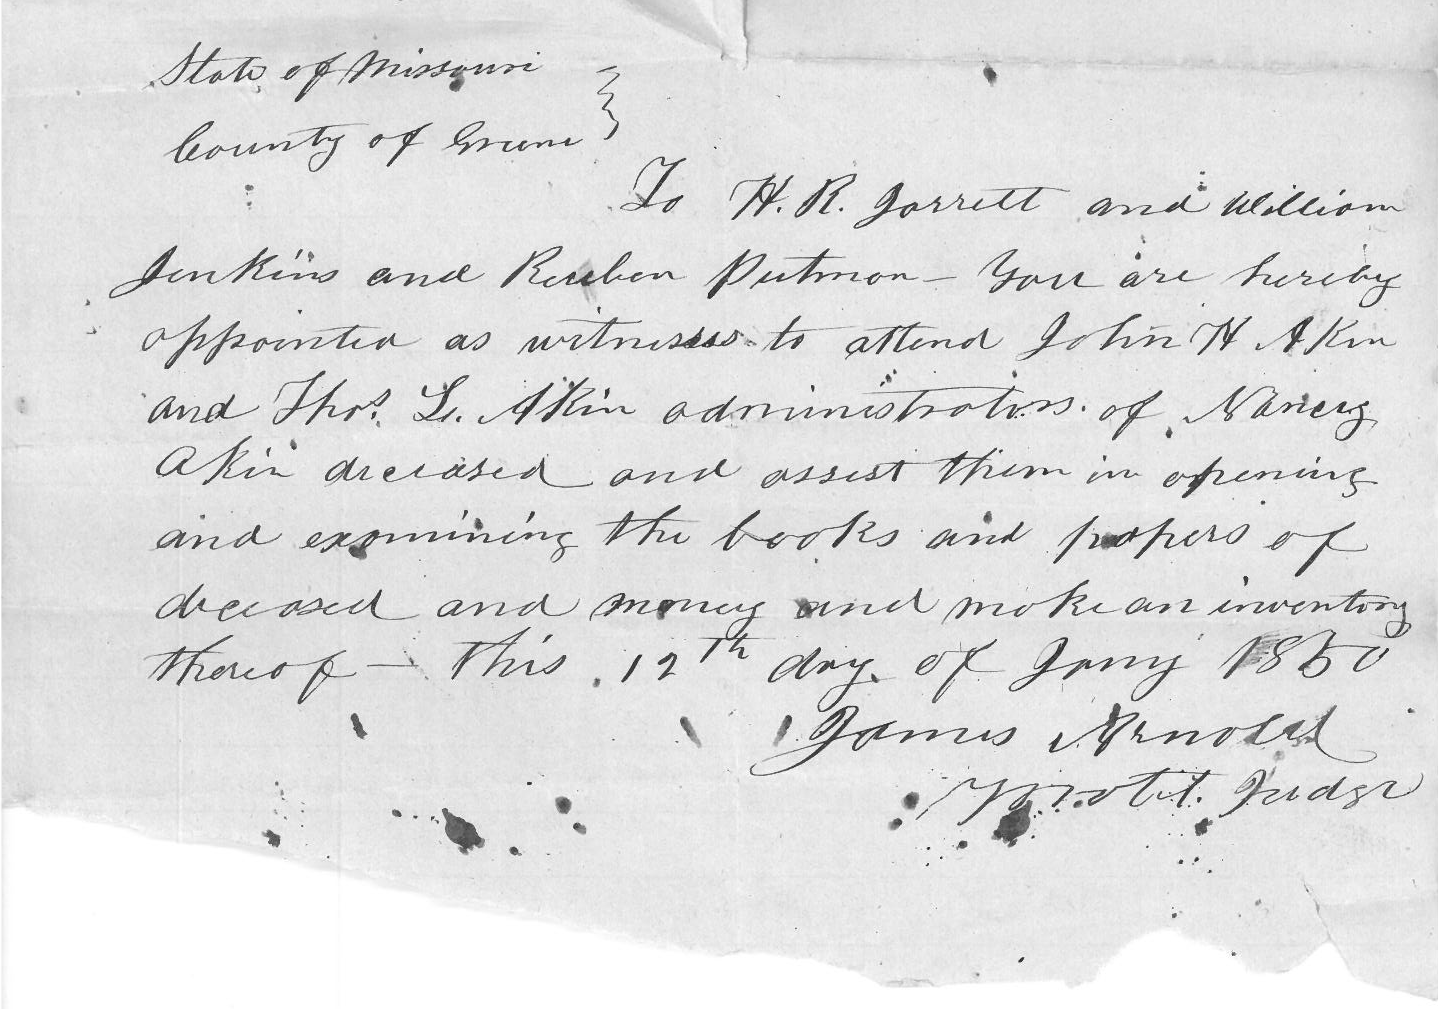 State of Missouri
County of Greene
To H. R. Jarrett and William
Jenkins and Reuben Putman – You are hereby
appointed as witnesses to attend John H Akin
and Thos. L. Akin administrators of Nancy
Akin deceased and assist them in opening
and examining the books and papers of
deceased and money and make an inventory
thereof – this 12th day of Jany 1850
James Arnold
Judge